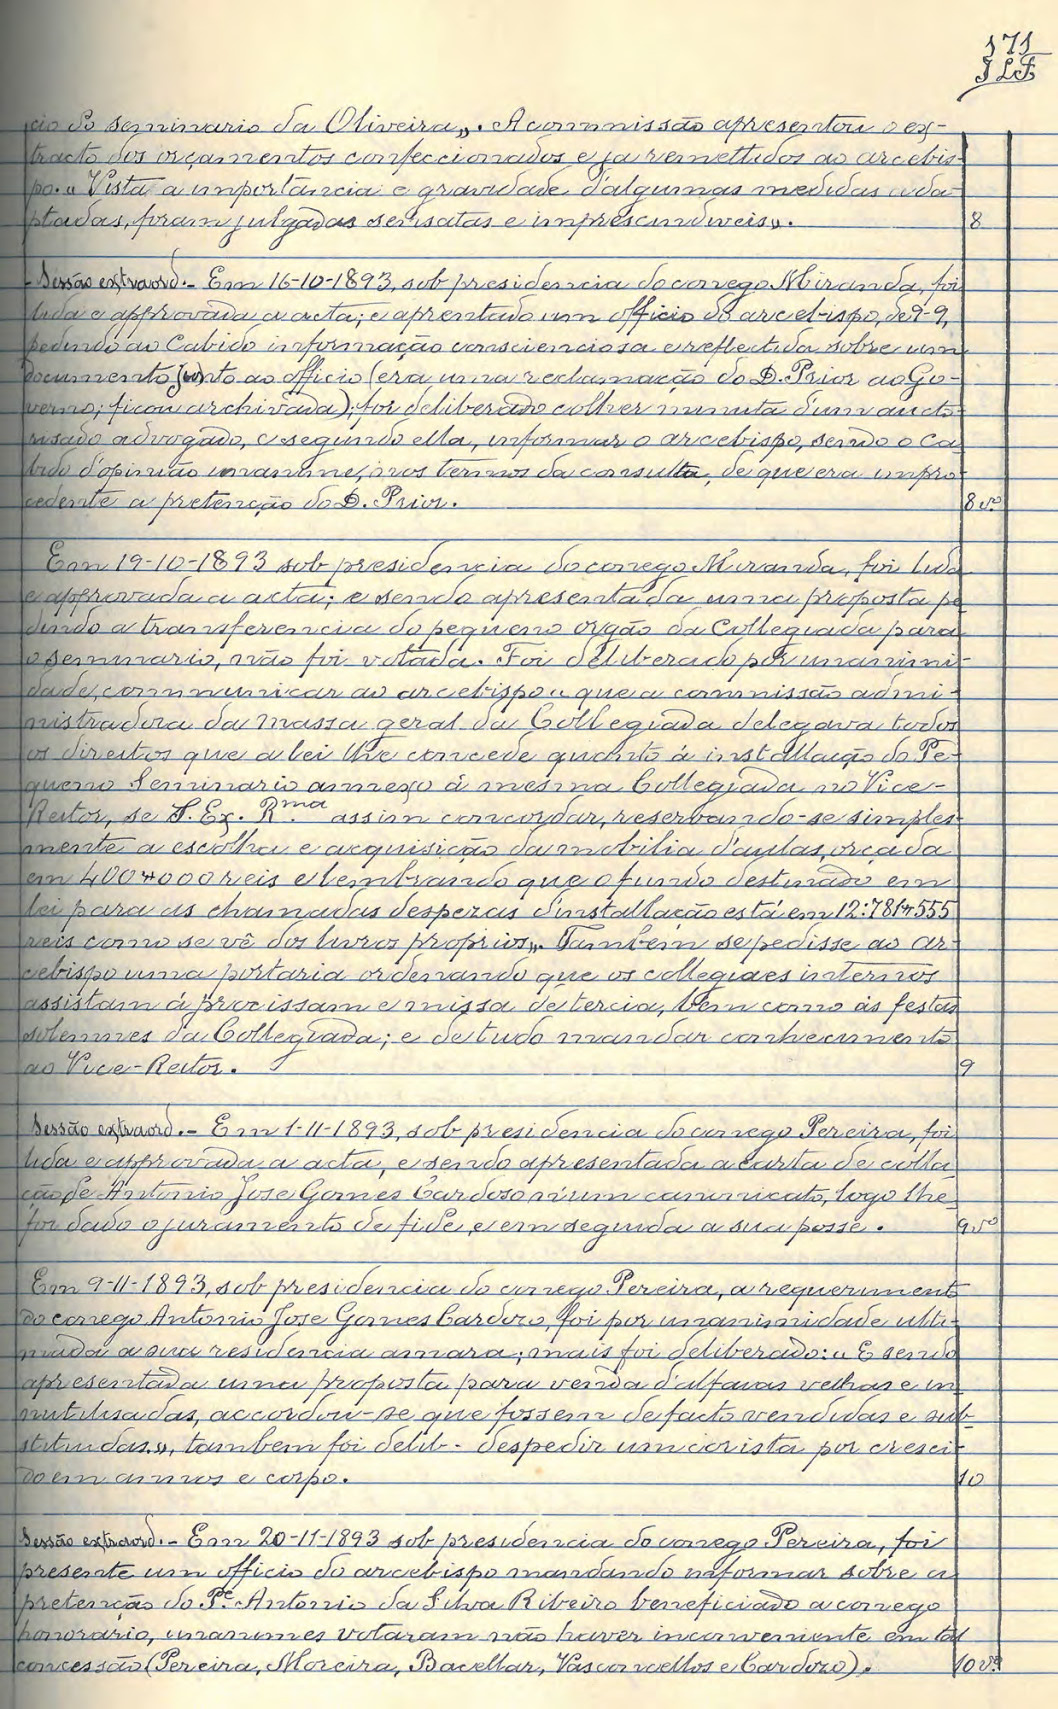 171
J L F
cio do seminario da Oliveira„. A commissão apresentou o ex-
tracto dos orçamentos confeccionados e ja remettidos ao arcebis-
po. „ Vista a importancia e gravidade d'algumas medidas ada-
ptadas, foram julgadas sensatas e imprescindiveis„. 8
Sessão extraord. - Em 16-10-1893, sob presidencia do conego Miranda, foi
lida e approvada a acta; e aprentado um officio do arcebispo, de 9-9,
pedindo ao Cabido informação conscienciosa e reflectida sobre um
documento junto ao officio (era uma reclamação do D. Prior ao Go-
verno; ficou archivada); foi deliberado colher minuta d'um aucto-
risado advogado, e segundo ella, informar o arcebispo, sendo o Ca-
bido d'opinião unanime, nos termos da consulta, de que era impro-
cedente a pretenção do D. Prior. 8 vº
Em 19-10-1893 sob presidencia do conego Miranda, foi lida
e approvada a acta; e sendo apresentada uma proposta pe-
dindo a transferencia do pequeno orgão da Collegiada para
o seminario, não foi votada. Foi deliberado por unanimi-
dade, communicar ao arcebispo „ que a commissão admi-
nistradora da massa geral da Collegiada delegava todos
os direitos que a lei lhe concede quanto á installação do Pe-
queno Seminario annexo á mesma Collegiada no Vice-
Reitor, se S. Ex. R.ma assim concordar, reservando-se simples-
mente a escolha e acquisição da mobilia d'aulas, orçada
em 400$000 reis e lembrando que o fundo destinado em
lei para as chamadas despezas d'installação está em 12:781$555
reis como se vê dos livros proprios„. Tambem se pedisse ao ar-
cebispo uma portaria ordenando que os collegiaes internos
assistam á procissam e missa de tercia, bem como ás festas
solemnes da Collegiada; e de tudo mandar conhecimento
ao Vice-Reitor. 9
Sessão extraord. - Em 1-11-1893, sob presidencia do conego Pereira, foi
lida e approvada a acta, e sendo apresentada a carta de colla-
ção de Antonio Jose Gomes Cardoso n'um canonicato, logo lhe
foi dado o juramento de fide, e em seguida a sua posse. 9 vº
Em 9-11-1893, sob presidencia do conego Pereira, a requerimento
do conego Antonio Jose Gomes Cardozo, foi por unanimidade ulti-
mada a sua residencia amara; mais foi deliberado: „ E sendo
apresentada uma proposta para venda d'alfaias velhas e in-
nutilisadas, accordou-se que fossem de facto vendidas e sub-
stituidas„, tambem foi delib. despedir um corista por cresci-
do em annos e corpo. 10
Sessão extraord. - Em 20-11-1893 sob presidencia do conego Pereira, foi
presente um officio do arcebispo mandando informar sobre a
pretenção do P.e Antonio da Silva Ribeiro beneficiado a conego
honorario, unanimes votaram não haver inconveniente em tal
concessão (Pereira, Moreira, Bacellar, Vasconcellos e Cardozo). 10 vº